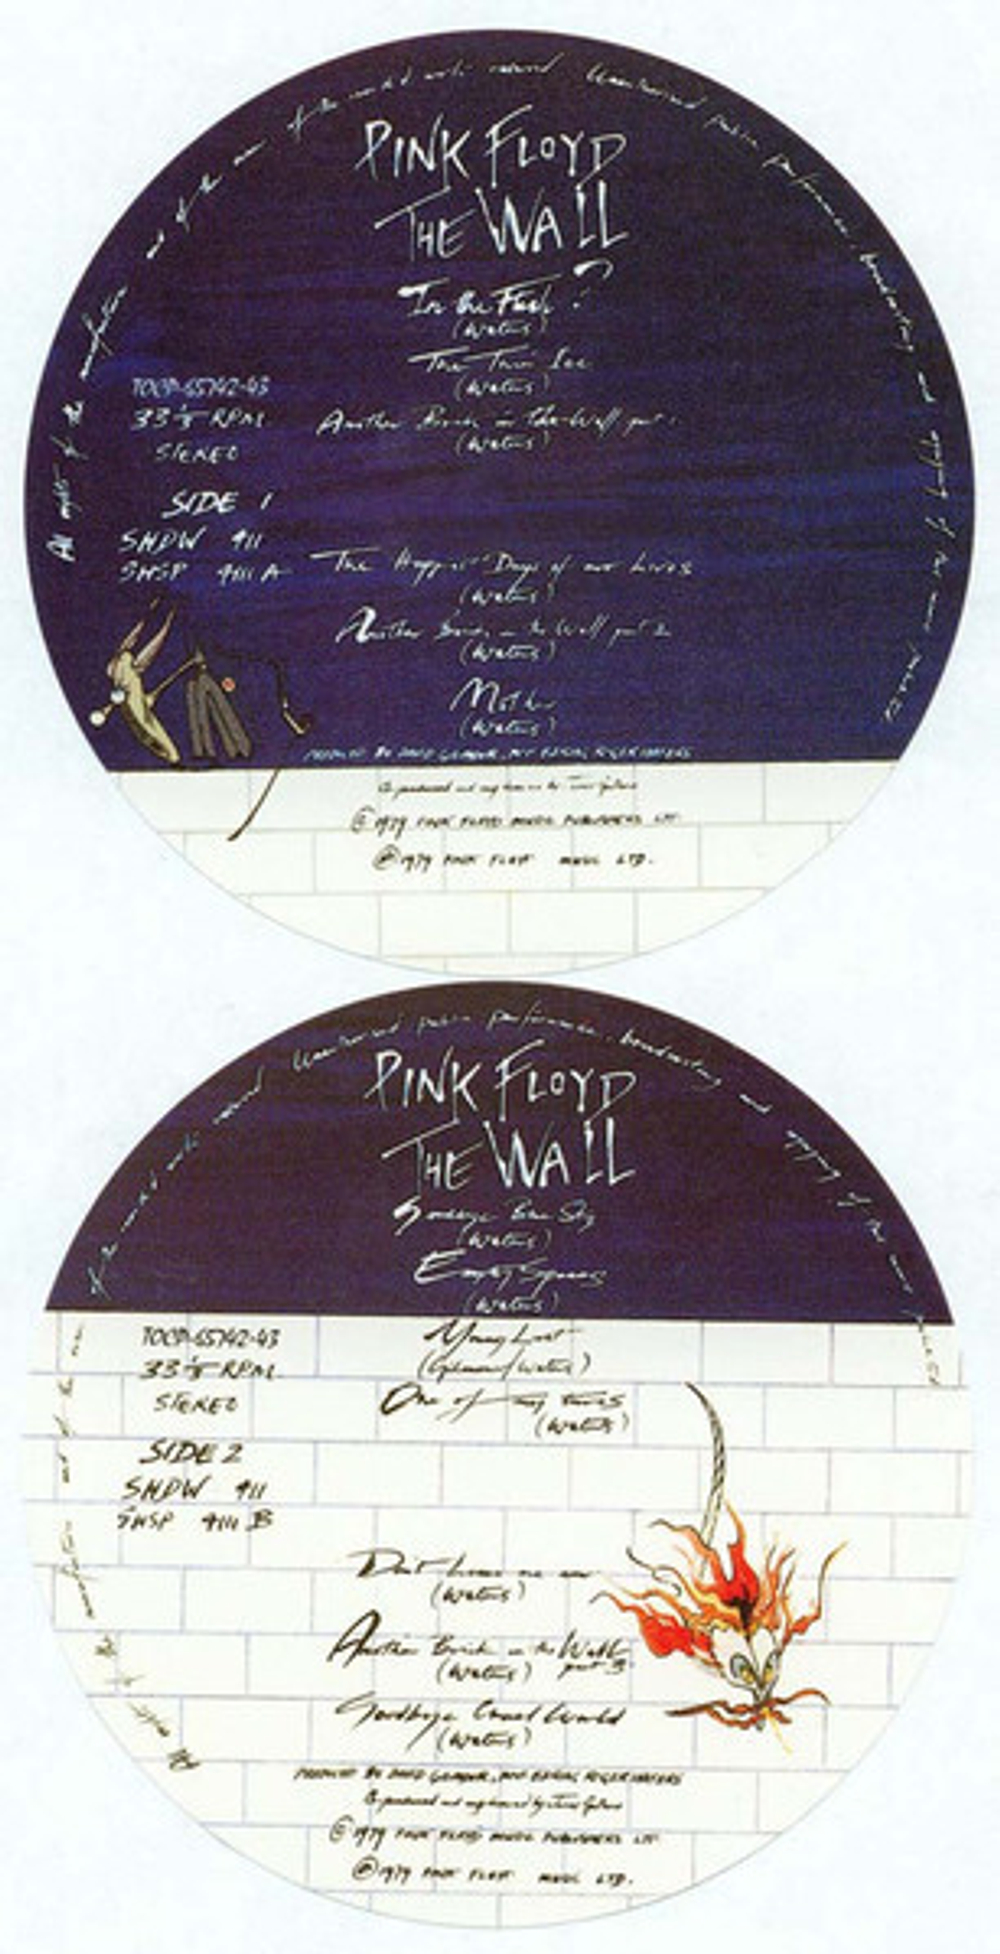 All rights of the manufacturer and of the owner of the recorded work reserved Unauthorised public performance, broadcasting and copying of this record
PINK FLOYD
THE WALL
In the Flesh ?
(Waters)
The Thin Ice
(Waters)
Another Brick in the Wall part 1
(Waters)
TOCP-65742-43
33 1/3 RPM.
STEREO
SIDE 1
SHDW 411
SHSP 4111 A
The Happiest Days of our Lives
(Waters)
Another Brick in the Wall part 2
(Waters)
Mother
(Waters)
PRODUCED BY DAVID GILMOUR, BOB EZRIN, ROGER WATERS
Co produced and engineered by James Guthrie
© 1979 PINK FLOYD MUSIC PUBLISHERS LTD.
℗ 1979 PINK FLOYD MUSIC LTD.
All rights of the manufacturer and of the owner of the recorded work reserved Unauthorised public performance, broadcasting and copying of this record
PINK FLOYD
THE WALL
Goodbye Blue Sky
(Waters)
Empty Spaces
(Waters)
Young Lust
(Gilmour/Waters)
One of my turns
(Waters)
TOCP-65742-43
33 1/3 RPM.
STEREO
SIDE 2
SHDW 411
SHSP 4111 B
Don't leave me now
(Waters)
Another Brick in the Wall
part 3
(Waters)
Goodbye Cruel World
(Waters)
PRODUCED BY DAVID GILMOUR, BOB EZRIN, ROGER WATERS
Co produced and engineered by James Guthrie
© 1979 PINK FLOYD MUSIC PUBLISHERS LTD.
℗ 1979 PINK FLOYD MUSIC LTD.